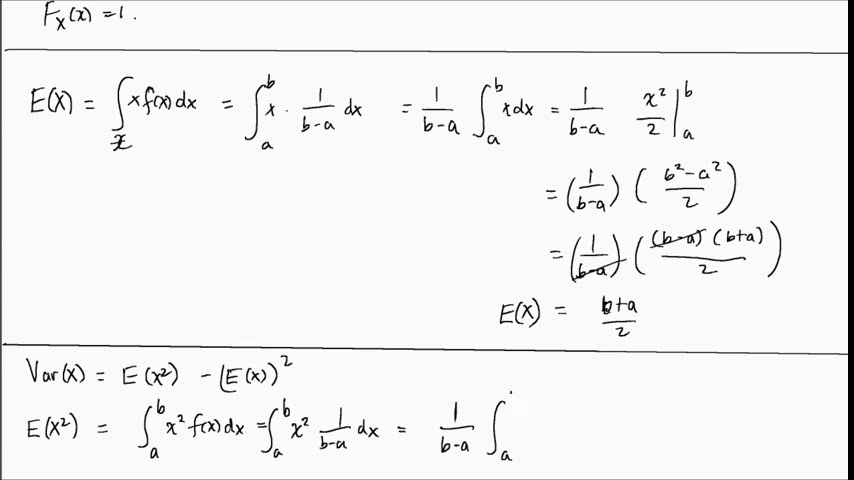 F_X(x) = 1.
E(X) = ∫_𝒳 x f(x) dx = ∫_a^b x · 1/(b-a) dx = 1/(b-a) ∫_a^b x dx = 1/(b-a) x²/2 |_a^b
= (1/(b-a)) ((b²-a²)/2)
= (1/(b-a)) ((b-a)(b+a)/2)
E(X) = (b+a)/2
Var(X) = E(X²) - (E(X))²
E(X²) = ∫_a^b x² f(x) dx = ∫_a^b x² 1/(b-a) dx = 1/(b-a) ∫_a